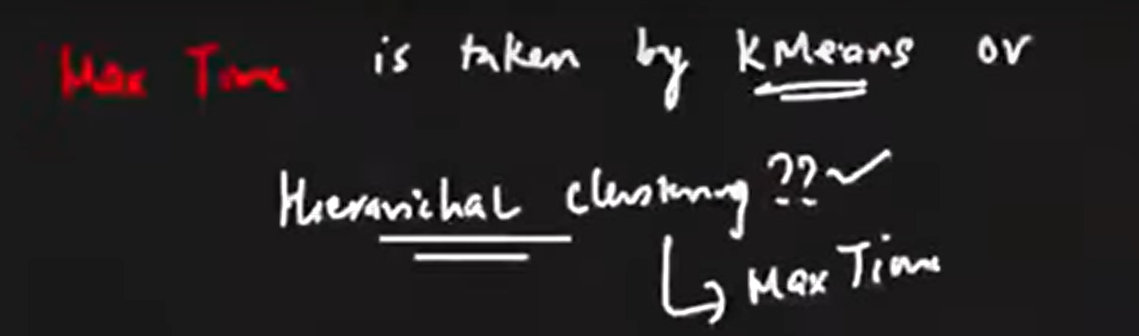 Max Time is taken by KMeans or
Hierarichal clustering ??
Max Time